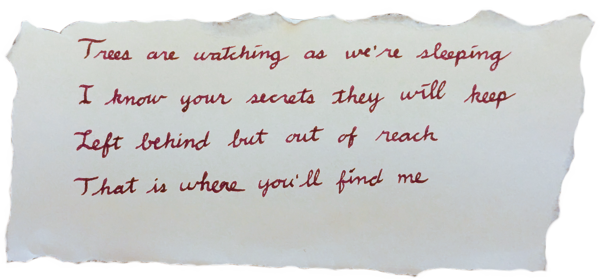 Trees are watching as we're sleeping
I know your secrets they will keep
Left behind but out of reach
That is where you'll find me